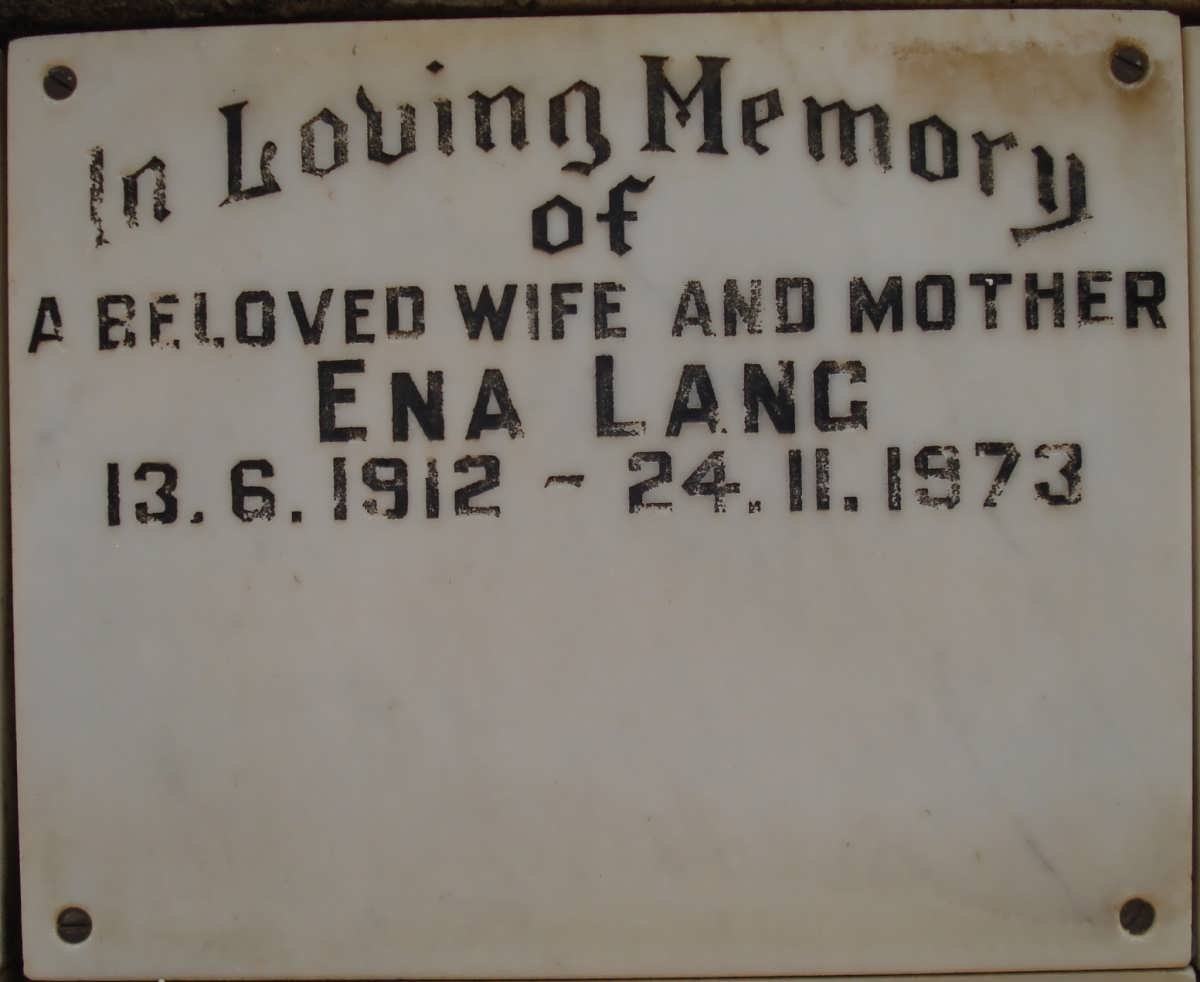 In Loving Memory
of
A BELOVED WIFE AND MOTHER
ENA LANG
13.6.1912 - 24.11.1973